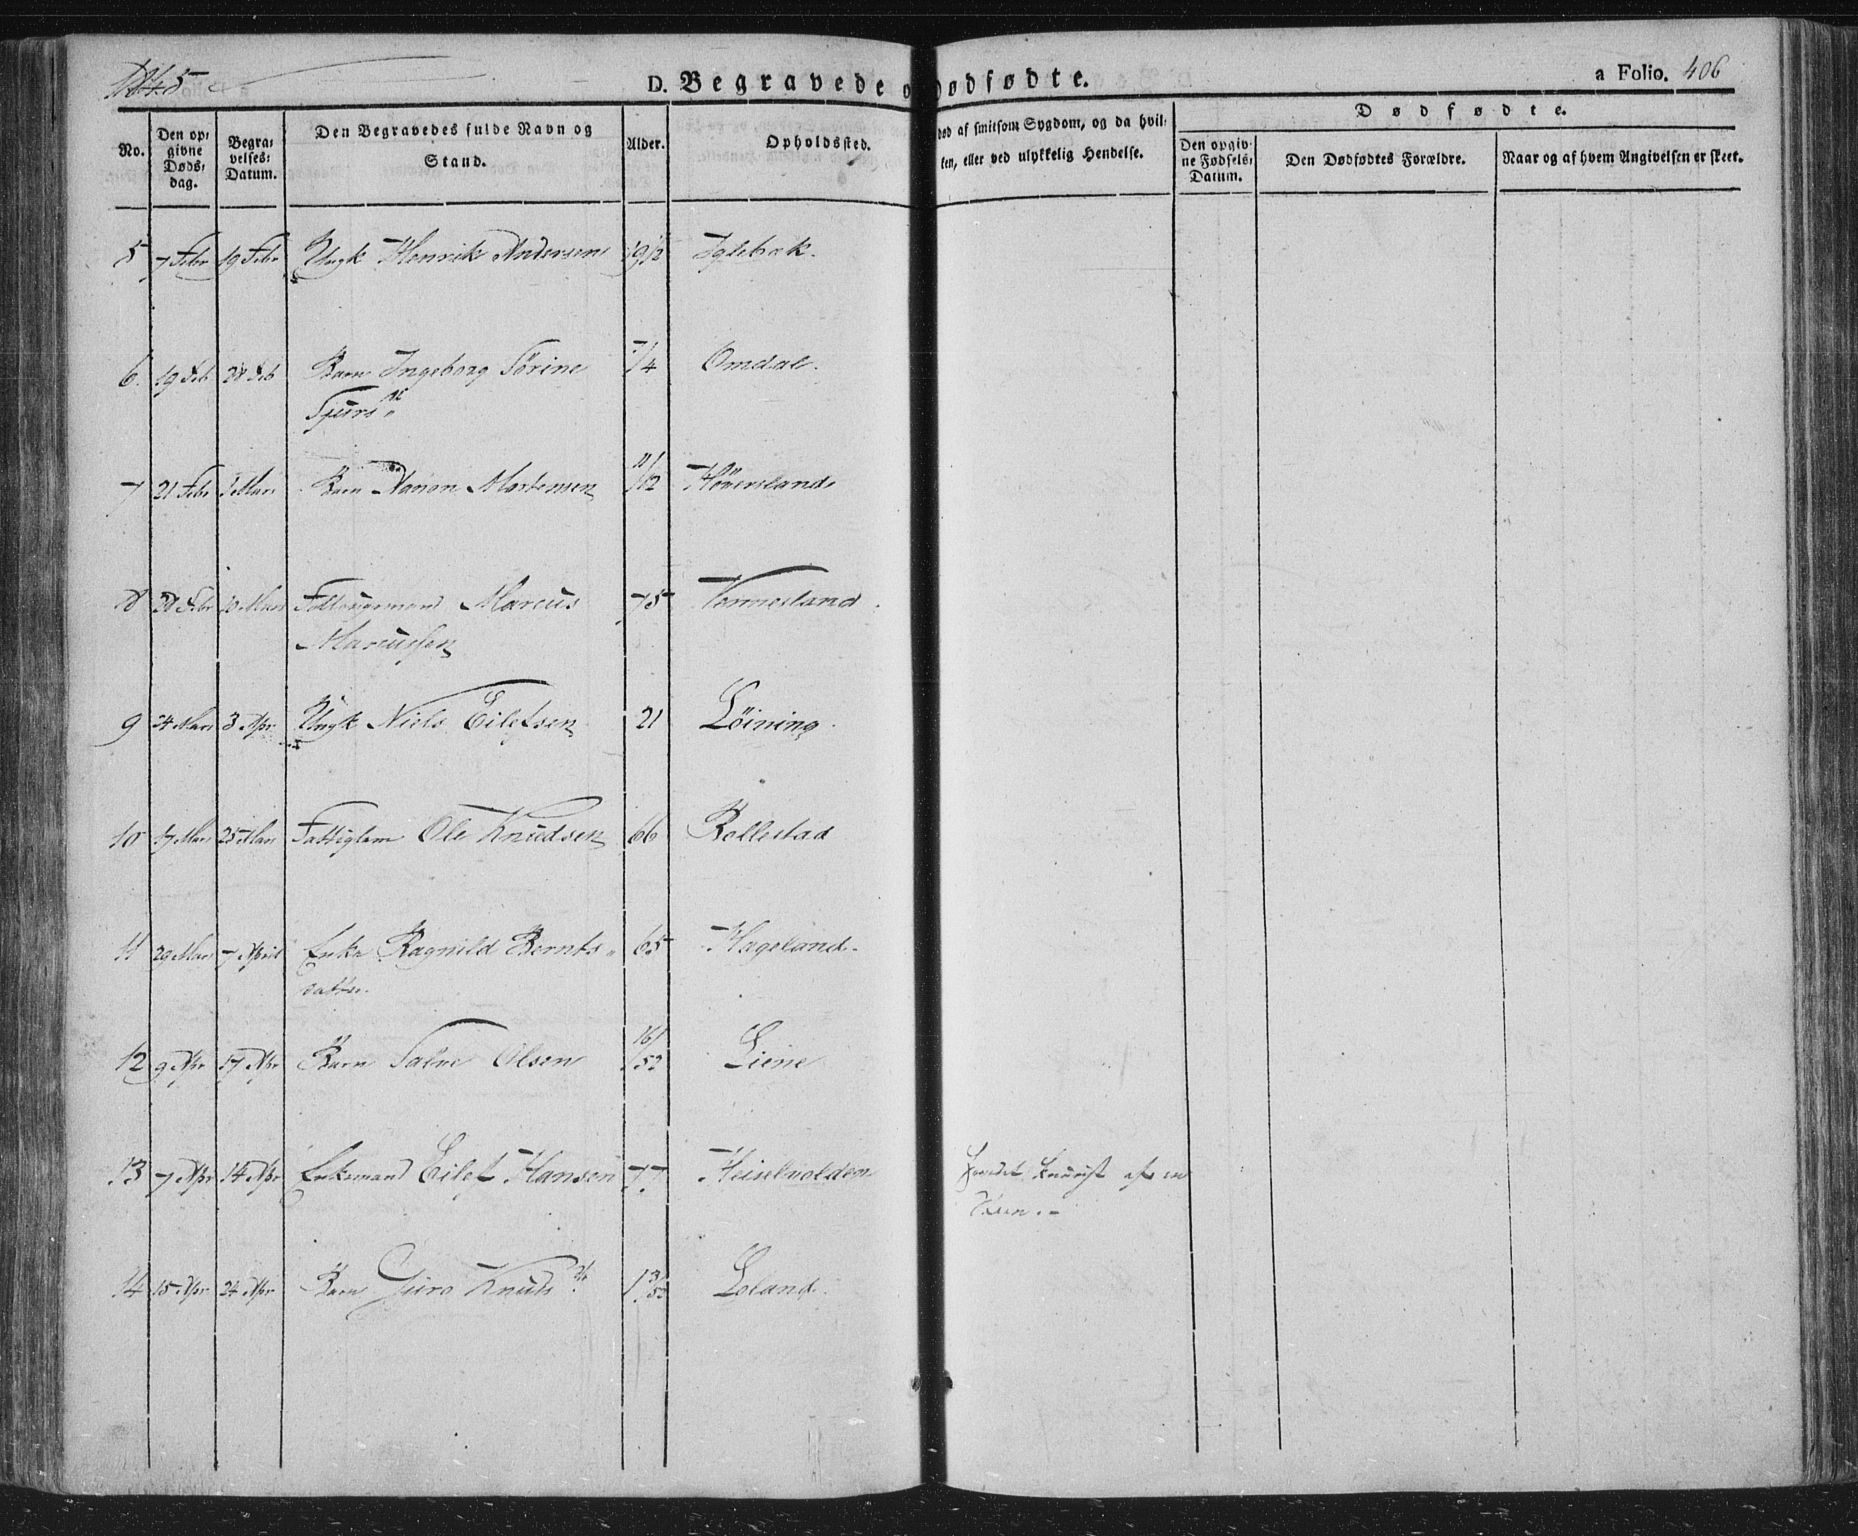 1845
D. Begravede o dødfødte.
a Folio. 406
No.
Den opgivne Dødsdag.
Begravelses-Datum.
Den Begravedes fulde Navn og Stand.
Alder.
Opholdssted.
død af smitsom Sygdom, og da hvilken, eller ved ulykkelig Hendelse.
Dødfødte.
Den opgivne Fødsels-Datum.
Den Dødfødtes Forældre.
Naar og af hvem Angivelsen er skeet.
5 7 Febr 19 Febr Ungk Henrik Andersen 19 1/2 Iglebæk.
6. 19 Feb 28 Feb Barn Ingeborg Sørine 7/4 Omdal.
Sjurs
7 21 Febr 2 Mars Barn Aanon Mortensen 11/12 Höversland
8 28 Febr 10 Mars Marcus 75 Vennesland.
Marcussen
9 24 Mars 3 Apr Ungk Niels Eilefsen 21 Löining.
10 17 Mars 25 Mars Fattiglem Ole Knudsen 66 Rollestad
11 29 Mars 7 April Enke Ragnild Bernts- 65 Hageland.
datter.
12 9 Apr 17 Apr Barn Salve Olsen 16/52 Liene
13 7 Apr 14 Apr Enkemand Eilef Hansen 77 af en
14 15 Apr 24 Apr Barn Guro Knuts 13/52 Loland.